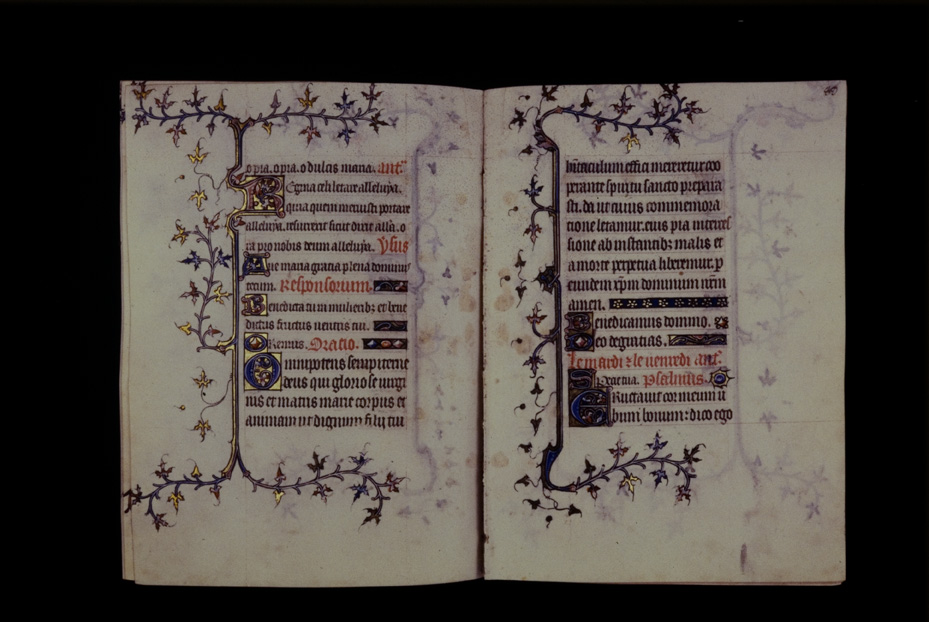 o pia. o pia. o dulcis maria. ant.
Regina celi letare alleluya.
quia quem meruisti portare
alleluya. resurrexit sicut dixit alla. o
ra pro nobis deum alleluya. Vsus
Aue maria gratia plena dominus
tecum. Responsorium.
Benedicta tu in mulieribz et bene
dictus fructus uentris tui.
Oremus. Oratio.
Omnipotens sempiterne
deus qui gloriose uirgi
nis et matris marie corpus et
animam ut dignum filij tui
bitaculum effici mereretur coo
perante spiritu sancto prepara
sti. da ut cuius commemora
tione letamur. eius pia interces
sione ab instantibz malis et
a morte perpetua liberemur. p
eundem xpm dominum nrm
amen.
Benedicamus domino.
Deo dei gratias.
Le mardi z le uenredi ant.
Specie tua. psalmus.
Eructauit cor meum u
erbum bonum: dico ego